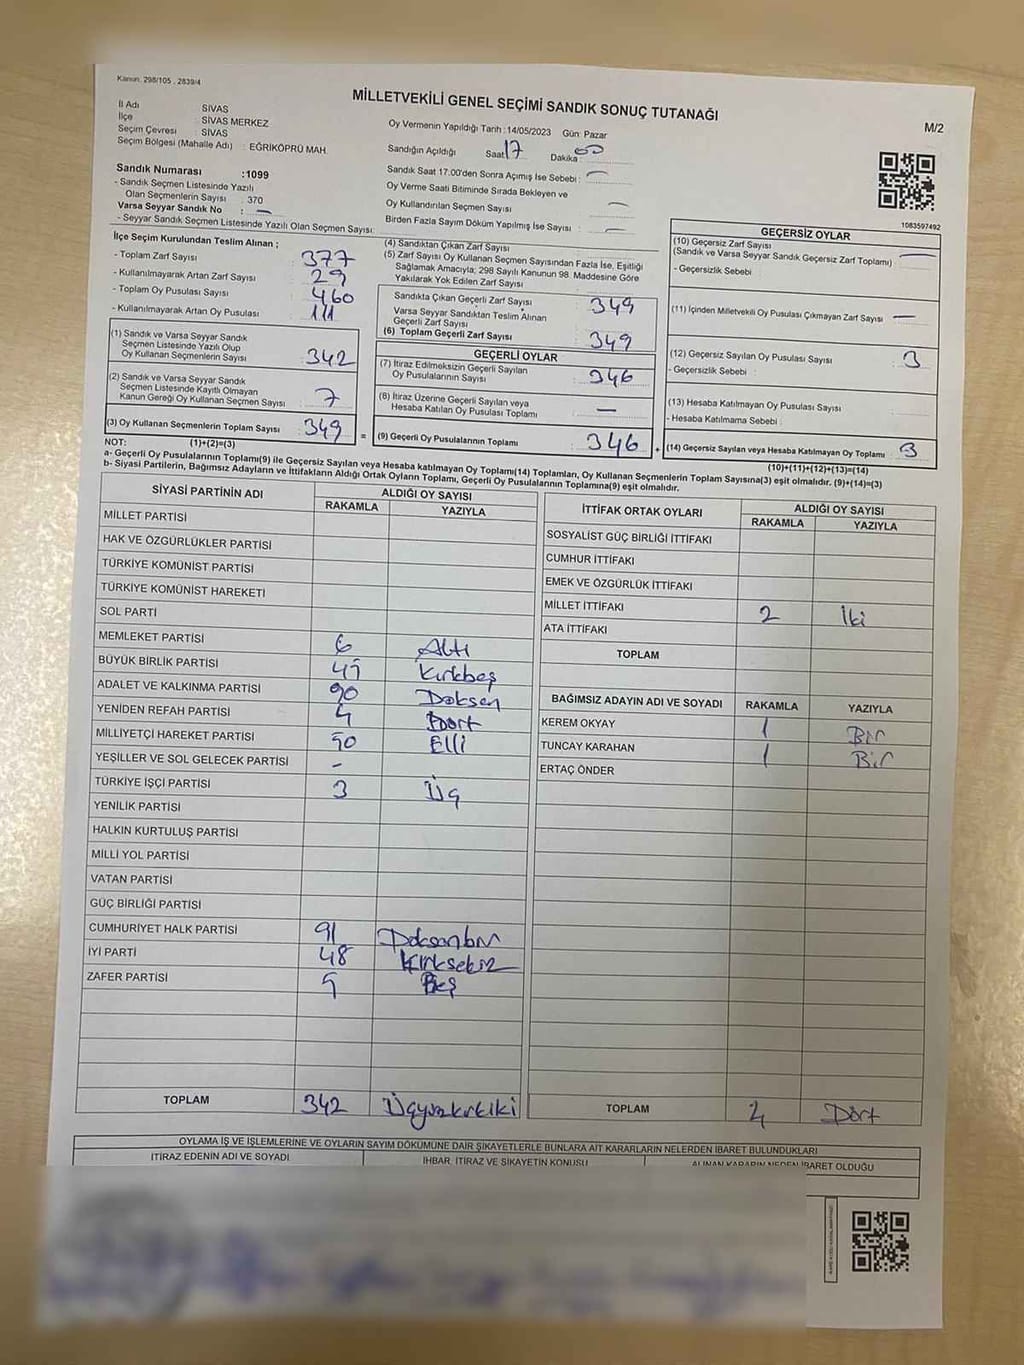 Kanun: 298/105 , 2839/4
MİLLETVEKİLİ GENEL SEÇİMİ SANDIK SONUÇ TUTANAĞI
M/2
İl Adı : SİVAS
İlçe : SİVAS MERKEZ
Seçim Çevresi : SİVAS
Seçim Bölgesi (Mahalle Adı) : EĞRİKÖPRÜ MAH.
Sandık Numarası :1099
- Sandık Seçmen Listesinde Yazılı
Olan Seçmenlerin Sayısı : 370
Varsa Seyyar Sandık No : —
- Seyyar Sandık Seçmen Listesinde Yazılı Olan Seçmen Sayısı:
Oy Vermenin Yapıldığı Tarih :14/05/2023 Gün: Pazar
Sandığın Açıldığı Saat 17 Dakika : 00
Sandık Saat 17.00'den Sonra Açılmış İse Sebebi : —
Oy Verme Saati Bitiminde Sırada Bekleyen ve
Oy Kullandırılan Seçmen Sayısı —
Birden Fazla Sayım Döküm Yapılmış İse Sayısı : —
1083597492
İlçe Seçim Kurulundan Teslim Alınan ;
- Toplam Zarf Sayısı : 377
- Kullanılmayarak Artan Zarf Sayısı : 29
- Toplam Oy Pusulası Sayısı : 460
- Kullanılmayarak Artan Oy Pusulası : 111
(1) Sandık ve Varsa Seyyar Sandık
Seçmen Listesinde Yazılı Olup
Oy Kullanan Seçmenlerin Sayısı : 342
(2) Sandık ve Varsa Seyyar Sandık
Seçmen Listesinde Kayıtlı Olmayan
Kanun Gereği Oy Kullanan Seçmen Sayısı : 7
(3) Oy Kullanan Seçmenlerin Toplam Sayısı : 349 =
(4) Sandıktan Çıkan Zarf Sayısı
(5) Zarf Sayısı Oy Kullanan Seçmen Sayısından Fazla İse, Eşitliği
Sağlamak Amacıyla; 298 Sayılı Kanunun 98. Maddesine Göre
Yakılarak Yok Edilen Zarf Sayısı
Sandıkta Çıkan Geçerli Zarf Sayısı : 349
Varsa Seyyar Sandıktan Teslim Alınan
Geçerli Zarf Sayısı
(6) Toplam Geçerli Zarf Sayısı : 349
GEÇERLİ OYLAR
(7) İtiraz Edilmeksizin Geçerli Sayılan
Oy Pusulalarının Sayısı : 346
(8) İtiraz Üzerine Geçerli Sayılan veya
Hesaba Katılan Oy Pusulası Toplamı : —
(9) Geçerli Oy Pusulalarının Toplamı : 346 +
GEÇERSİZ OYLAR
(10) Geçersiz Zarf Sayısı
(Sandık ve Varsa Seyyar Sandık Geçersiz Zarf Toplamı) : —
- Geçersizlik Sebebi :
(11) İçinden Milletvekili Oy Pusulası Çıkmayan Zarf Sayısı : —
(12) Geçersiz Sayılan Oy Pusulası Sayısı : 3
- Geçersizlik Sebebi :
(13) Hesaba Katılmayan Oy Pusulası Sayısı :
- Hesaba Katılmama Sebebi :
(14) Geçersiz Sayılan veya Hesaba Katılmayan Oy Toplamı : 3
NOT: (1)+(2)=(3)
(10)+(11)+(12)+(13)=(14)
a- Geçerli Oy Pusulalarının Toplamı(9) ile Geçersiz Sayılan veya Hesaba katılmayan Oy Toplamı(14) Toplamları, Oy Kullanan Seçmenlerin Toplam Sayısına(3) eşit olmalıdır. (9)+(14)=(3)
b- Siyasi Partilerin, Bağımsız Adayların ve İttifakların Aldığı Ortak Oyların Toplamı, Geçerli Oy Pusulalarının Toplamına(9) eşit olmalıdır.
SİYASİ PARTİNİN ADI ALDIĞI OY SAYISI
RAKAMLA YAZIYLA
MİLLET PARTİSİ
HAK VE ÖZGÜRLÜKLER PARTİSİ
TÜRKİYE KOMÜNİST PARTİSİ
TÜRKİYE KOMÜNİST HAREKETİ
SOL PARTİ
MEMLEKET PARTİSİ 6 Altı
BÜYÜK BİRLİK PARTİSİ 45 Kırkbeş
ADALET VE KALKINMA PARTİSİ 90 Doksan
YENİDEN REFAH PARTİSİ 4 Dört
MİLLİYETÇİ HAREKET PARTİSİ 50 Elli
YEŞİLLER VE SOL GELECEK PARTİSİ -
TÜRKİYE İŞÇİ PARTİSİ 3 Üç
YENİLİK PARTİSİ
HALKIN KURTULUŞ PARTİSİ
MİLLİ YOL PARTİSİ
VATAN PARTİSİ
GÜÇ BİRLİĞİ PARTİSİ
CUMHURİYET HALK PARTİSİ 91 Doksanbir
İYİ PARTİ 48 Kırksekiz
ZAFER PARTİSİ 5 Beş
TOPLAM 342 Üçyüzkırkiki
İTTİFAK ORTAK OYLARI ALDIĞI OY SAYISI
RAKAMLA YAZIYLA
SOSYALİST GÜÇ BİRLİĞİ İTTİFAKI
CUMHUR İTTİFAKI
EMEK VE ÖZGÜRLÜK İTTİFAKI
MİLLET İTTİFAKI 2 İki
ATA İTTİFAKI
TOPLAM
BAĞIMSIZ ADAYIN ADI VE SOYADI RAKAMLA YAZIYLA
KEREM OKYAY 1 Bir
TUNCAY KARAHAN 1 Bir
ERTAÇ ÖNDER
TOPLAM 4 Dört
OYLAMA İŞ VE İŞLEMLERİNE VE OYLARIN SAYIM DÖKÜMÜNE DAİR ŞİKAYETLERLE BUNLARA AİT KARARLARIN NELERDEN İBARET BULUNDUKLARI
İTİRAZ EDENİN ADI VE SOYADI İHBAR, İTİRAZ VE ŞİKAYETİN KONUSU ALINAN KARARIN NEDEN İBARET OLDUĞU